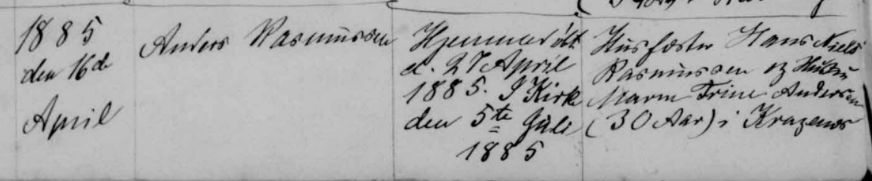 1885
den 16de
April
Anders Rasmussen
Hjemmedøbt
d. 27 April
1885. I Kirke
den 5te Juli
1885
Husfæster Hans Niels
Rasmussen og Hustru
Maren Trine Andersen
(30 Aar) i